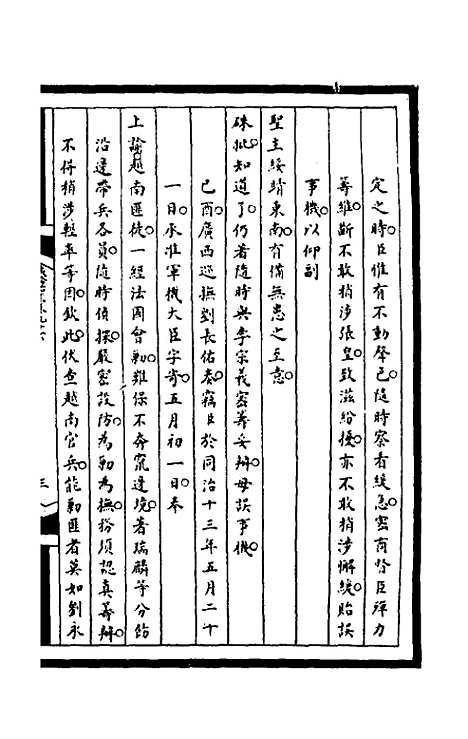 定之時臣惟有不動聲色隨時察看緩急密商督臣殫力
籌維斷不敢稍涉張皇致滋紛擾亦不敢稍涉懈緩貽誤
事機以仰副
聖主綏靖東南有備無患之至意
硃批知道了仍著隨時與李宗羲密籌妥辦毋誤事機
己酉廣西巡撫劉長佑奏竊臣於同治十三年五月二十
一日承准軍機大臣字寄五月初一日奉
上諭越南匪徒一經法國會勦難保不奔竄邊境著瑞麟等分飭
沿邊帶兵各員隨時偵探嚴密設防為勦為撫務須認真籌辦
不得稍涉輕率等因欽此伏查越南官兵能勦匪者莫如劉永
三